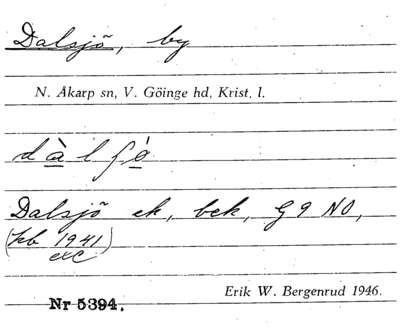 Dalsjö, by
N. Åkarp sn, V. Göinge hd, Krist. l.
Dalsjö ek, bek, G9 NO,
(kb 1941)
exc
Nr 5394. Erik W. Bergenrud 1946.